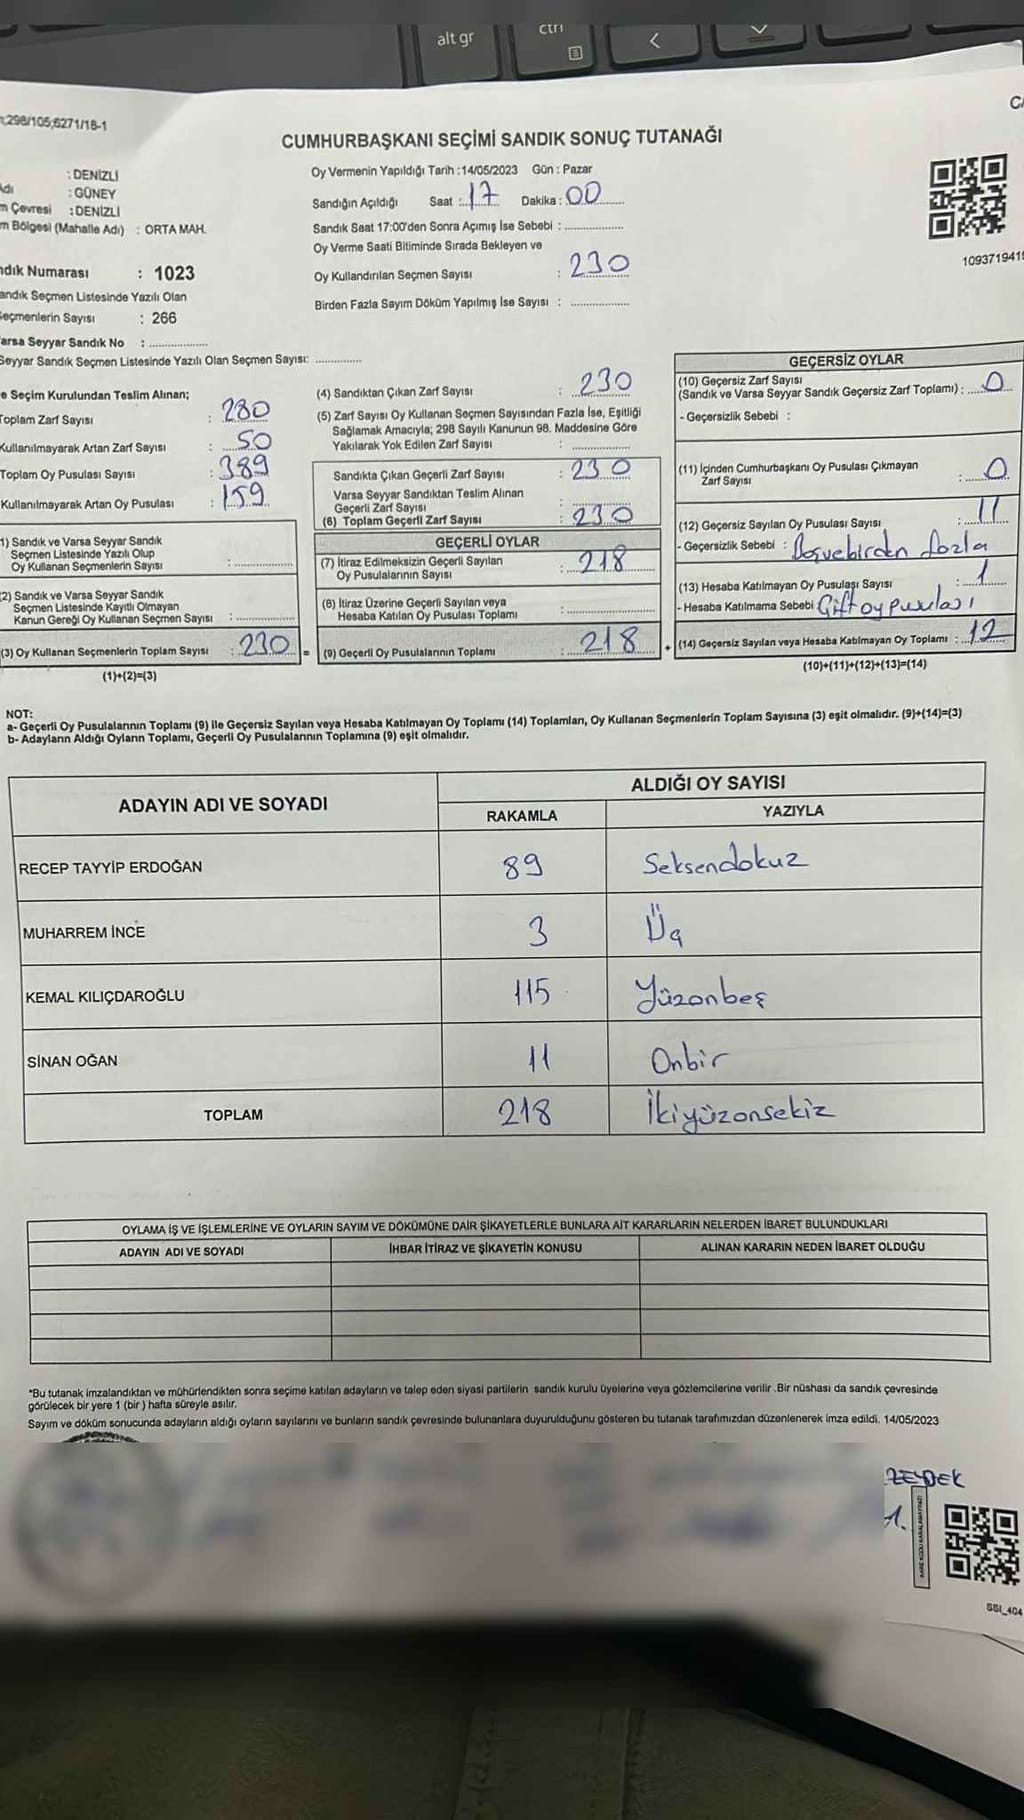 alt gr
ctrl
298/105;6271/18-1
CUMHURBAŞKANI SEÇİMİ SANDIK SONUÇ TUTANAĞI
: DENİZLİ
: GÜNEY
m Çevresi : DENİZLİ
m Bölgesi (Mahalle Adı) : ORTA MAH.
Oy Vermenin Yapıldığı Tarih :14/05/2023 Gün : Pazar
Sandığın Açıldığı Saat : 17 Dakika : 00
Sandık Saat 17:00'den Sonra Açımış İse Sebebi :
Oy Verme Saati Bitiminde Sırada Bekleyen ve
Oy Kullandırılan Seçmen Sayısı : 230
Birden Fazla Sayım Döküm Yapılmış İse Sayısı :
ndık Numarası : 1023
andık Seçmen Listesinde Yazılı Olan
eçmenlerin Sayısı : 266
arsa Seyyar Sandık No :
Seyyar Sandık Seçmen Listesinde Yazılı Olan Seçmen Sayısı:
e Seçim Kurulundan Teslim Alınan;
Toplam Zarf Sayısı : 280
Kullanılmayarak Artan Zarf Sayısı : 50
Toplam Oy Pusulası Sayısı : 389
Kullanılmayarak Artan Oy Pusulası : 159
1) Sandık ve Varsa Seyyar Sandık
Seçmen Listesinde Yazılı Olup
Oy Kullanan Seçmenlerin Sayısı :
2) Sandık ve Varsa Seyyar Sandık
Seçmen Listesinde Kayıtlı Olmayan
Kanun Gereği Oy Kullanan Seçmen Sayısı :
(3) Oy Kullanan Seçmenlerin Toplam Sayısı : 230 =
(1)+(2)=(3)
(4) Sandıktan Çıkan Zarf Sayısı : 230
(5) Zarf Sayısı Oy Kullanan Seçmen Sayısından Fazla İse, Eşitliği
Sağlamak Amacıyla; 298 Sayılı Kanunun 98. Maddesine Göre
Yakılarak Yok Edilen Zarf Sayısı :
Sandıkta Çıkan Geçerli Zarf Sayısı : 230
Varsa Seyyar Sandıktan Teslim Alınan
Geçerli Zarf Sayısı :
(6) Toplam Geçerli Zarf Sayısı : 230
GEÇERLİ OYLAR
(7) İtiraz Edilmeksizin Geçerli Sayılan
Oy Pusulalarının Sayısı : 218
(8) İtiraz Üzerine Geçerli Sayılan veya
Hesaba Katılan Oy Pusulası Toplamı :
(9) Geçerli Oy Pusulalarının Toplamı : 218 +
109371941
GEÇERSİZ OYLAR
(10) Geçersiz Zarf Sayısı
(Sandık ve Varsa Seyyar Sandık Geçersiz Zarf Toplamı) : 0
- Geçersizlik Sebebi :
(11) İçinden Cumhurbaşkanı Oy Pusulası Çıkmayan
Zarf Sayısı : 0
(12) Geçersiz Sayılan Oy Pusulası Sayısı : 11
- Geçersizlik Sebebi : Boşvebirden fazla
(13) Hesaba Katılmayan Oy Pusulası Sayısı : 1
- Hesaba Katılmama Sebebi Çift oy pusulası
(14) Geçersiz Sayılan veya Hesaba Katılmayan Oy Toplamı : 12
(10)+(11)+(12)+(13)=(14)
NOT:
a- Geçerli Oy Pusulalarının Toplamı (9) ile Geçersiz Sayılan veya Hesaba Katılmayan Oy Toplamı (14) Toplamları, Oy Kullanan Seçmenlerin Toplam Sayısına (3) eşit olmalıdır. (9)+(14)=(3)
b- Adayların Aldığı Oyların Toplamı, Geçerli Oy Pusulalarının Toplamına (9) eşit olmalıdır.
ADAYIN ADI VE SOYADI
ALDIĞI OY SAYISI
RAKAMLA YAZIYLA
RECEP TAYYİP ERDOĞAN 89 Seksendokuz
MUHARREM İNCE 3 Üç
KEMAL KILIÇDAROĞLU 115 Yüzonbeş
SİNAN OĞAN 11 Onbir
TOPLAM 218 İkiyüzonsekiz
OYLAMA İŞ VE İŞLEMLERİNE VE OYLARIN SAYIM VE DÖKÜMÜNE DAİR ŞİKAYETLERLE BUNLARA AİT KARARLARIN NELERDEN İBARET BULUNDUKLARI
ADAYIN ADI VE SOYADI İHBAR İTİRAZ VE ŞİKAYETİN KONUSU ALINAN KARARIN NEDEN İBARET OLDUĞU
*Bu tutanak imzalandıktan ve mühürlendikten sonra seçime katılan adayların ve talep eden siyasi partilerin sandık kurulu üyelerine veya gözlemcilerine verilir .Bir nüshası da sandık çevresinde
görülecek bir yere 1 (bir ) hafta süreyle asılır.
Sayım ve döküm sonucunda adayların aldığı oyların sayılarını ve bunların sandık çevresinde bulunanlara duyurulduğunu gösteren bu tutanak tarafımızdan düzenlenerek imza edildi. 14/05/2023
ZEYBEK
1.
SSI_404